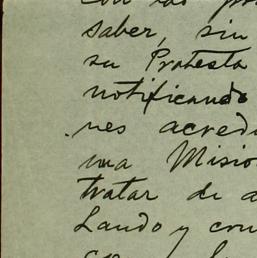 con las pro
saber, sin
su Protesta
notificando
nes acredi
una Misio
tratar de a
Lando y con